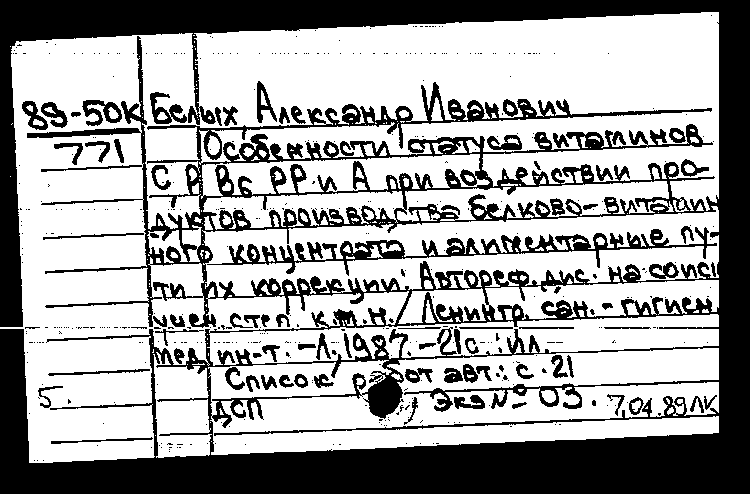 89-50К Белых, Александр Иванович
771 Особенности статуса витаминов
С Р В6 РР и А при воздействии про-
дуктов производства белково-витамин
ного концентрата и алиментарные пу-
ти их коррекции: Автореф. дис. на соиск
учен. степ. к.м.н. / Ленингр. сан.-гигиен.
мед. ин-т. -Л., 1987. -21с.: ил.
Список работ авт.: с. 21
5. ДСП Экз № 03. 7.04.89 ЛК